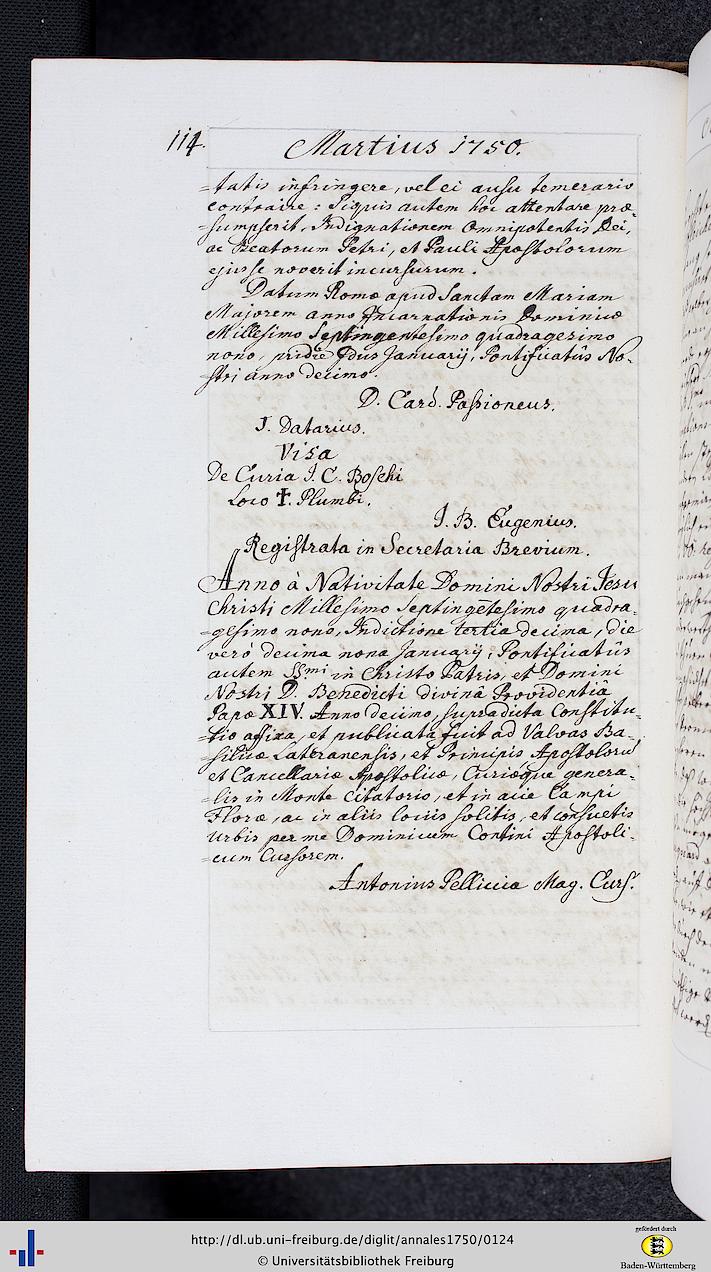 114.
Martius 1750.
=tatis infringere, vel ei ausu temerario
contraire: Siquis autem hoc attentare præ=
=sumpserit, Indignationem Omnipotentis Dei,
ac Beatorum Petri, et Pauli Apostolorum
ejus se noverit incursurum.
Datum Romæ apud Sanctam Mariam
Majorem anno Incarnationis Dominicæ
Millesimo Septingentesimo quadragesimo
nono, pridie Idus Januarij, Pontificatûs No=
=stri anno decimo.
D. Card. Passioneus.
J. Datarius.
Visa
De Curia J. C. Boschi
Loco †. Plumbi.
J. B. Eugenius.
Registrata in Secretaria Brevium.
Anno à Nativitate Domini Nostri Jesu
Christi Millesimo Septingētesimo quadra=
=gesimo nono, Indictione tertia decima, die
verò decima nona Januarij, Pontificatûs
autem SSmi in Christo Patris, et Domini
Nostri D. Benedicti divinâ Providentiâ
Papæ XIV. Anno decimo, supradicta Constitu=
=tio affixa, et publicata fuit ad Valvas Ba=
=silicæ Lateranensis, et Principis Apostolorū
et Cancellariæ Apostolicæ, Curiæque genera=
=lis in Monte Citatorio, et in acie Campi
Floræ, ac in aliis locis solitis, et consuetis
Urbis per me Dominicum Contini Apostoli=
=cum Cursorem.
Antonius Pelliccia Mag. Curs.
http://dl.ub.uni-freiburg.de/diglit/annales1750/0124
© Universitätsbibliothek Freiburg
gefördert durch
Baden-Württemberg